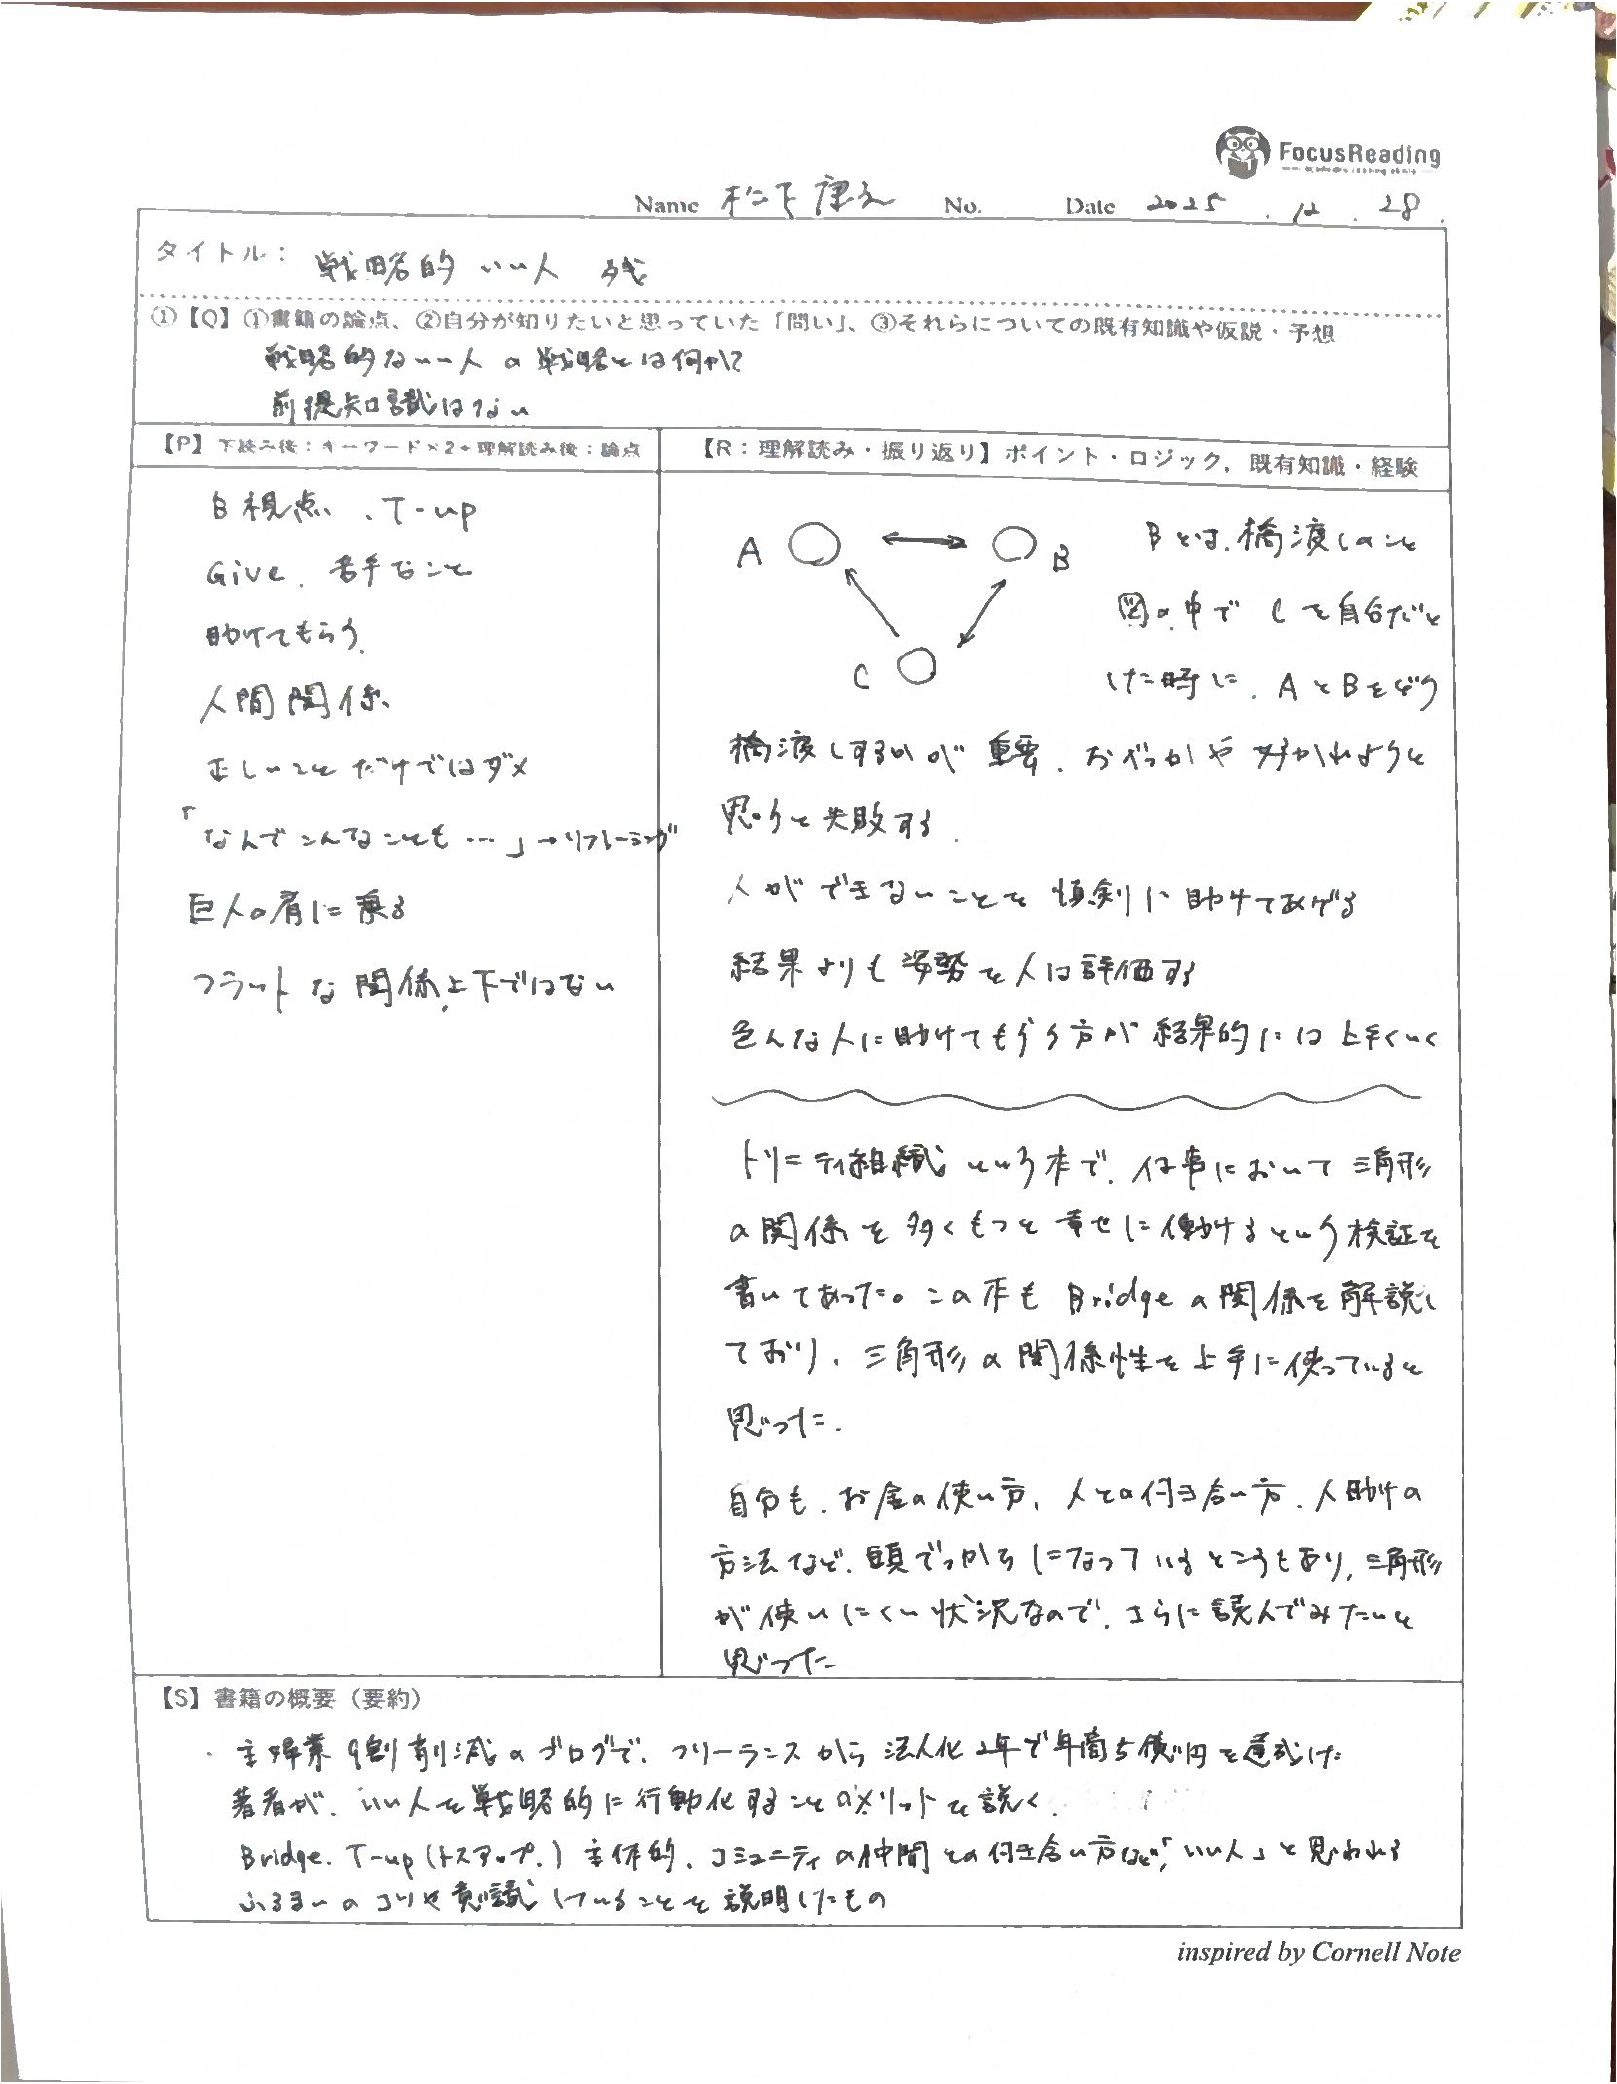 FocusReading
Name 松下 康之 No. Date 2025 . 12 . 28 .
タイトル： 戦略的 いい人 残
①【Q】①書籍の論点、②自分が知りたいと思っていた「問い」、③それらについての既有知識や仮説・予想
戦略的ないい人の戦略とは何か?
前提知識はない
【P】下読み後：キーワード×2+理解読み後：論点
B視点、T-up
Give、苦手なこと
助けてもらう、
人間関係、
正しいことだけではダメ
「なんでこんなことも…」→リフレーミング
巨人の肩に乗る
フラットな関係、上下ではない
【R：理解読み・振り返り】ポイント・ロジック，既有知識・経験
A B
C
Bとは、橋渡しのこと
図の中で Cを自分だと
した時に、AとBをどう
橋渡しするかが重要、おべっかや好かれようと
思うと失敗する.
人ができないことを真剣に助けてあげる
結果よりも姿勢を人は評価する
色んな人に助けてもらう方が結果的には上手くいく
トリニティ組織という本で、仕事において三角形
の関係を多くもつと幸せに働けるという検証を
書いてあった。この本もBridgeの関係を解説し
ており、三角形の関係性を上手に使っていると
思った.
自分も、お金の使い方、人との付き合い方、人助けの
方法など、頭でっかちになっているところもあり、三角形
が使いにくい状況なので、さらに読んでみたいと
思った
【S】書籍の概要（要約）
・主婦業9割削減のブログで、フリーランスから法人化2年で年商5億円を達成した
著者が、いい人を戦略的に行動化することのメリットを説く.
Bridge、T-up(トスアップ) 主体的、コミュニティの仲間との付き合い方など、「いい人」と思われる
ふるまいのコツや意識していることを説明したもの
inspired by Cornell Note